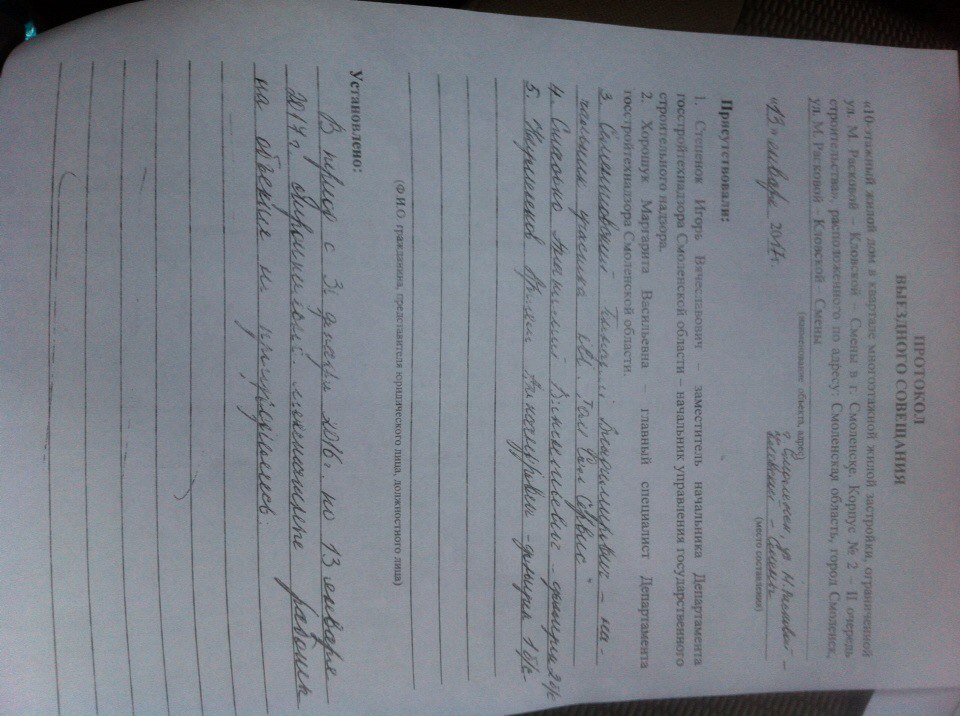 ПРОТОКОЛ
ВЫЕЗДНОГО СОВЕЩАНИЯ
«10-этажный жилой дом в квартале многоэтажной жилой застройки, ограниченной
ул. М. Расковой – Кловской – Смены в г. Смоленске. Корпус № 2 – II очередь
строительства», расположенного по адресу: Смоленская область, город Смоленск,
ул. М. Расковой – Кловской – Смены
(наименование объекта, адрес)
«13» января 2017г.
г. Смоленск, ул. М. Расковой –
Кловской – Смены
(место составления)
Присутствовали:
1. Стеценок Игорь Вячеславович – заместитель начальника Департамента
госстройтехнадзора Смоленской области – начальник управления государственного
строительного надзора.
2. Хорощук Маргарита Васильевна – главный специалист Департамента
госстройтехнадзора Смоленской области.
3. Владимирович – на-
чальник участка Сервис"
4. Васильевич – дольщик
5. – дольщик
(Ф.И.О. гражданина, представителя юридического лица, должностного лица)
Установлено:
В период с 31 декабря 2016г. по 13 января
2017г. работы
на объекте не производились.